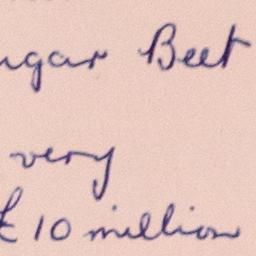 ugar Beet
very
£10 million